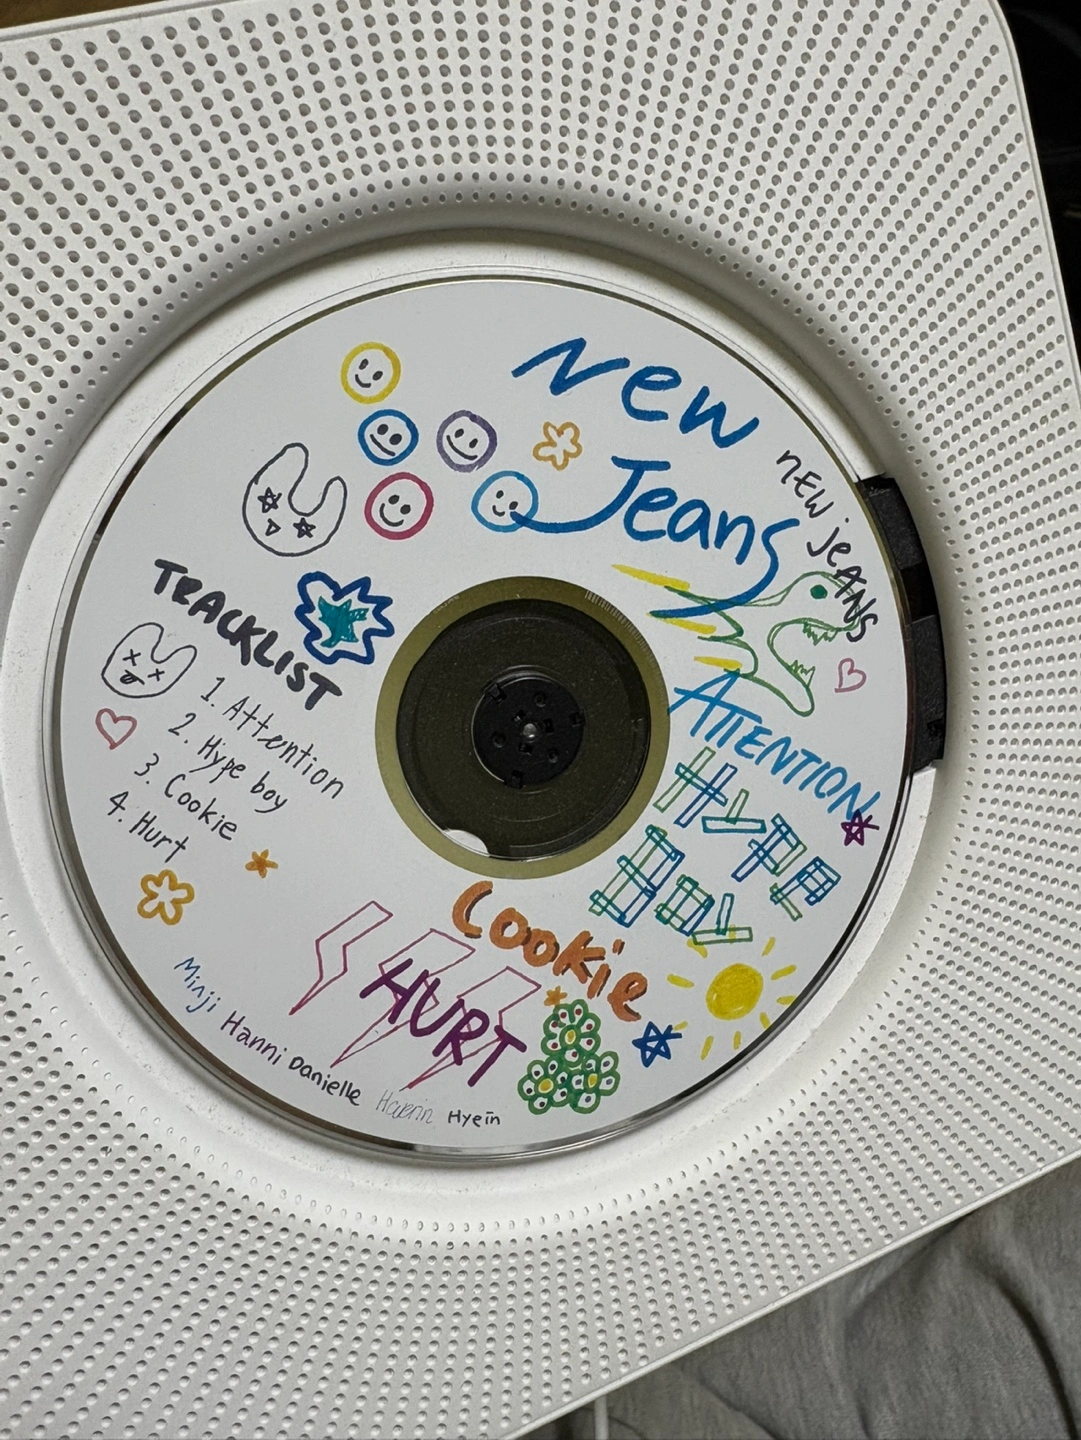 New
Jeans
NEW JEANS
TRACKLIST
1. Attention
2. Hype boy
3. Cookie
4. Hurt
ATTENTION
HYPE
BOY
Cookie
HURT
Minji Hanni Danielle Haerin Hyein